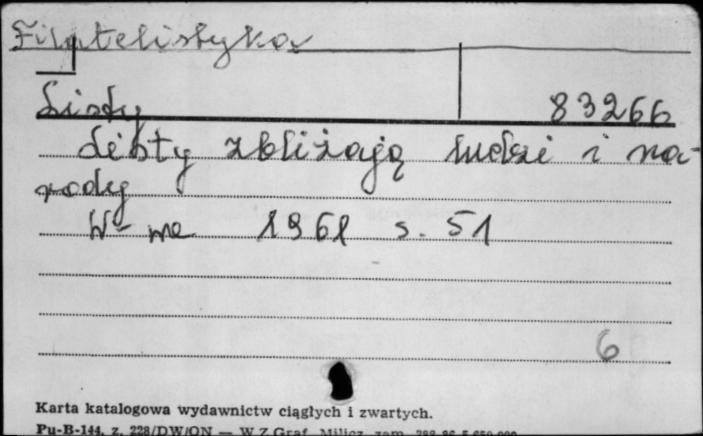 Filatelistyka
Listy 83266
Listy zbliżają ludzi i na-
rody
W-wa 1961 s. 51
6
Karta katalogowa wydawnictw ciągłych i zwartych.
Pu-B-144, z. 228/DW/ON — W.Z.Graf. Milicz, zam.